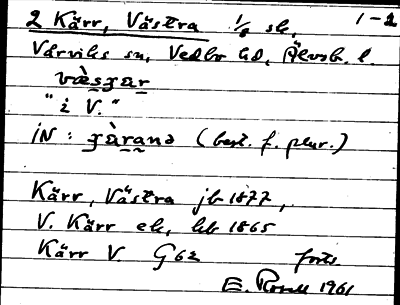 2 Kärr, Västra 1/8 sk, 1-2
Värviks sn, Vedbo hd, Älvsb. l.
væ̀sʒar
"i V."
iN: ʒàrana (best. f. plur.)
Kärr, Västra jb 1877,
V. Kärr ek, kb 1865
Kärr V. G62 forts
E. Rosell 1961